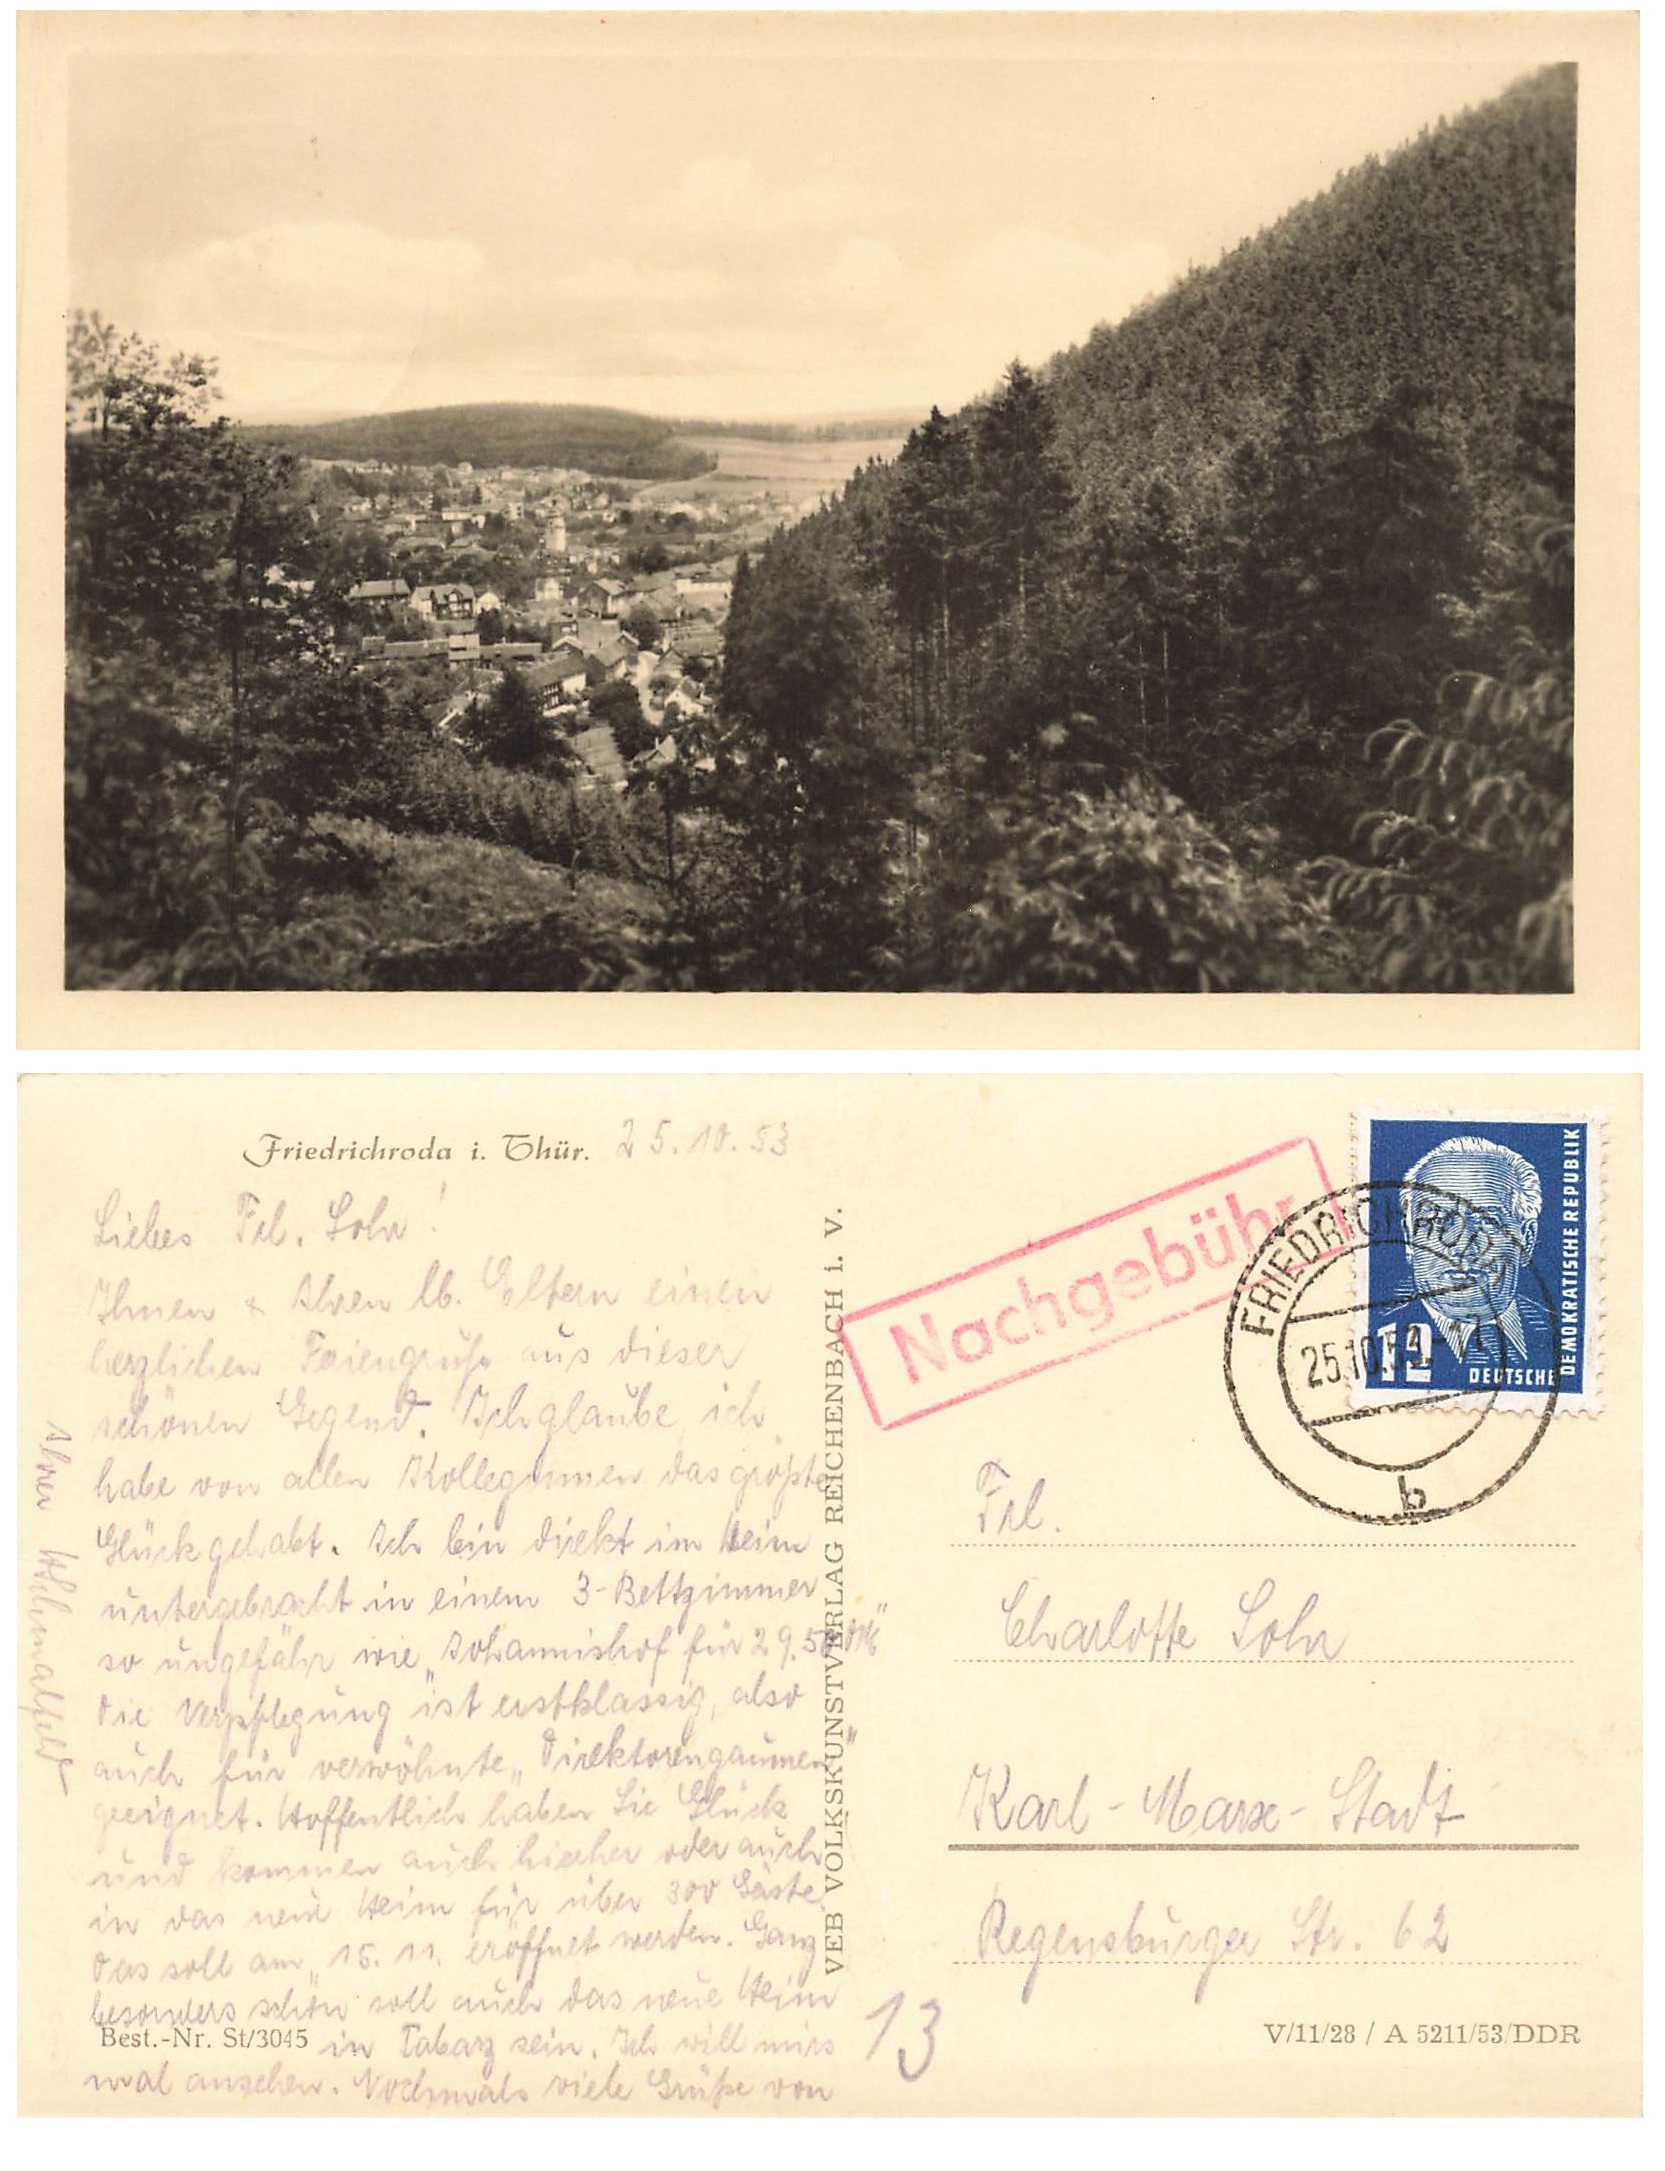 Friedrichroda i. Thür. 25.10.53
Liebes Frl. Sohr!
Ihnen & Ihren lb. Eltern einen
herzlichen Feriengruß aus dieser
schönen Gegend. Ich glaube, ich
habe von allen Kolleginnen das größte
Glück gehabt. Ich bin direkt im Heim
untergebracht in einem 3-Bettzimmer
so ungefähr wie „Johannishof für 29.50 DM"
Die Verpflegung ist erstklassig, also
auch für verwöhnte „Direktorengaumen"
geeignet. Hoffentlich haben Sie Glück
und kommen auch hierher oder auch
in das neue Heim für über 300 Gäste.
Das soll am 15. 11. eröffnet werden. Ganz
besonders schön soll auch das neue Heim
in Tabarz sein. Ich will mirs
mal ansehen. Nochmals viele Grüße von
Ihrer
Best.-Nr. St/3045
VEB VOLKSKUNSTVERLAG REICHENBACH i. V.
Nachgebühr
FRIEDRICHRODA
25.10.53-17
b
12
DEUTSCHE
DEMOKRATISCHE REPUBLIK
Frl.
Charlotte Sohr
Karl-Marx-Stadt
Regensburger Str. 62
13
V/11/28 / A 5211/53/DDR